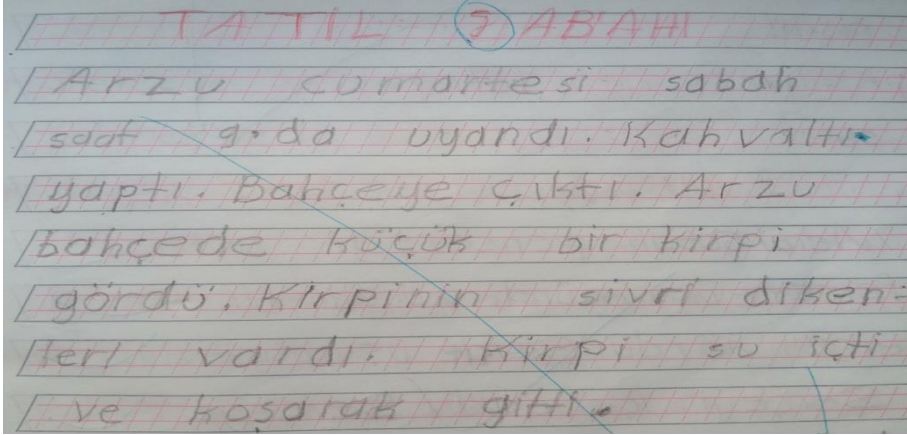 TATİL SABAHI
Arzu cumartesi sabah
saat 9.da uyandı. Kahvaltı
yaptı. Bahçeye çıktı. Arzu
bahçede küçük bir kirpi
gördü. Kirpinin sivri diken-
leri vardı. Kirpi su içti
ve koşarak gitti.